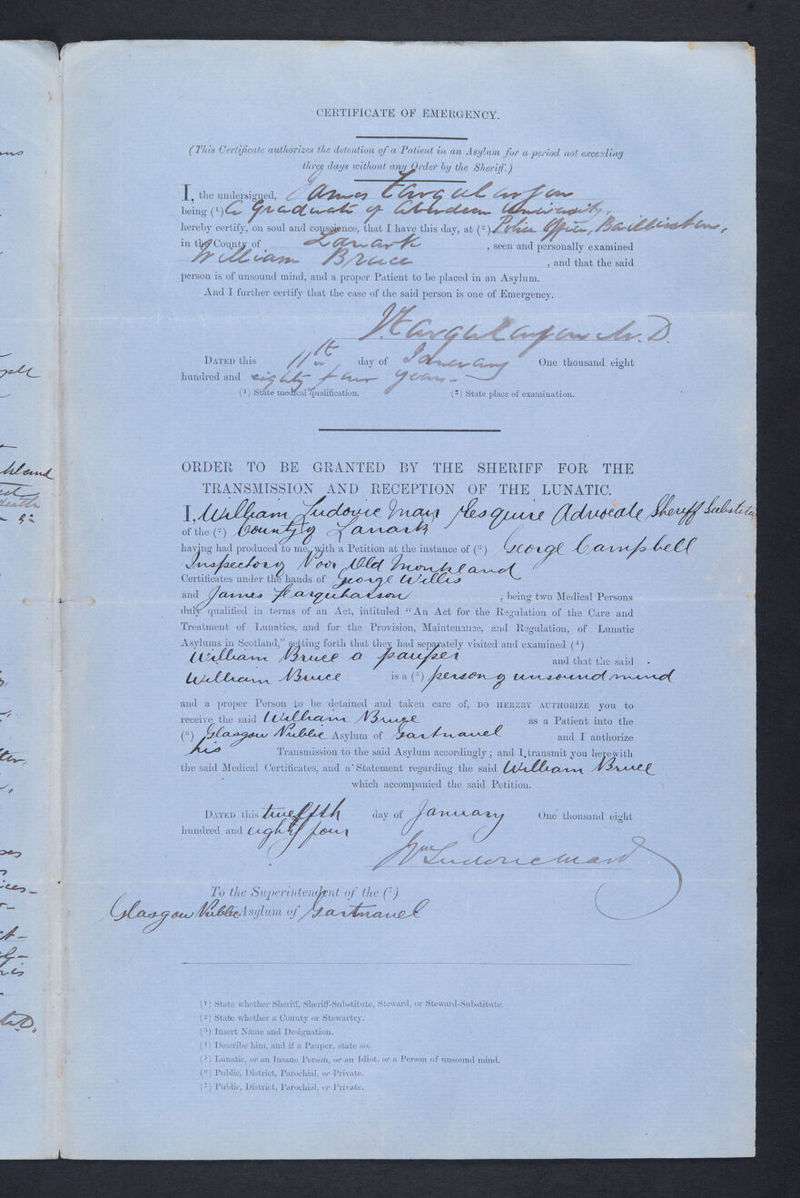 CERTIFICATE OF EMERGENCY.
(This Certificate authorizes the detention of a Patient in an Asylum for a period not exceeding
three days without any Order by the Sheriff.)
I, the undersigned, James Farquharson
being (1) a Graduate of Aberdeen University,
hereby certify, on soul and conscience, that I have this day, at (2) Police Office, Baillieston,
in the County of Lanark, seen and personally examined
William Bruce, and that the said
person is of unsound mind, and a proper Patient to be placed in an Asylum.
And I further certify that the case of the said person is one of Emergency.
J Farquharson M.D.
DATED this 11th day of January One thousand eight
hundred and eighty four years
(1) State medical qualification. (2) State place of examination.
ORDER TO BE GRANTED BY THE SHERIFF FOR THE
TRANSMISSION AND RECEPTION OF THE LUNATIC.
I, William Ludovic Mair Esquire Advocate Sheriff Substitute
of the (2) County of Lanark
having had produced to me, with a Petition at the instance of (3) George Campbell
Inspector of Poor Old Monkland
Certificates under the hands of George Willis
and James Farquharson, being two Medical Persons
duly qualified in terms of an Act, intituled "An Act for the Regulation of the Care and
Treatment of Lunatics, and for the Provision, Maintenance, and Regulation, of Lunatic
Asylums in Scotland," setting forth that they had separately visited and examined (4)
William Bruce a pauper and that the said
William Bruce is a (5) person of unsound mind
and a proper Person to be detained and taken care of, DO HEREBY AUTHORIZE you to
receive the said William Bruce as a Patient into the
(6) Glasgow Public Asylum of Gartnavel and I authorize
his Transmission to the said Asylum accordingly; and I transmit you herewith
the said Medical Certificates, and a Statement regarding the said William Bruce
which accompanied the said Petition.
DATED this twelfth day of January One thousand eight
hundred and eighty four
Wm Ludovic Mair
To the Superintendent of the (7)
Glasgow Public Asylum of Gartnavel
(1) State whether Sheriff, Sheriff-Substitute, Steward, or Steward-Substitute.
(2) State whether a County or Stewartry.
(3) Insert Name and Designation.
(4) Describe him, and if a Pauper, state so.
(5) Lunatic, or an Insane Person, or an Idiot, or a Person of unsound mind.
(6) Public, District, Parochial, or Private.
(7) Public, District, Parochial, or Private.